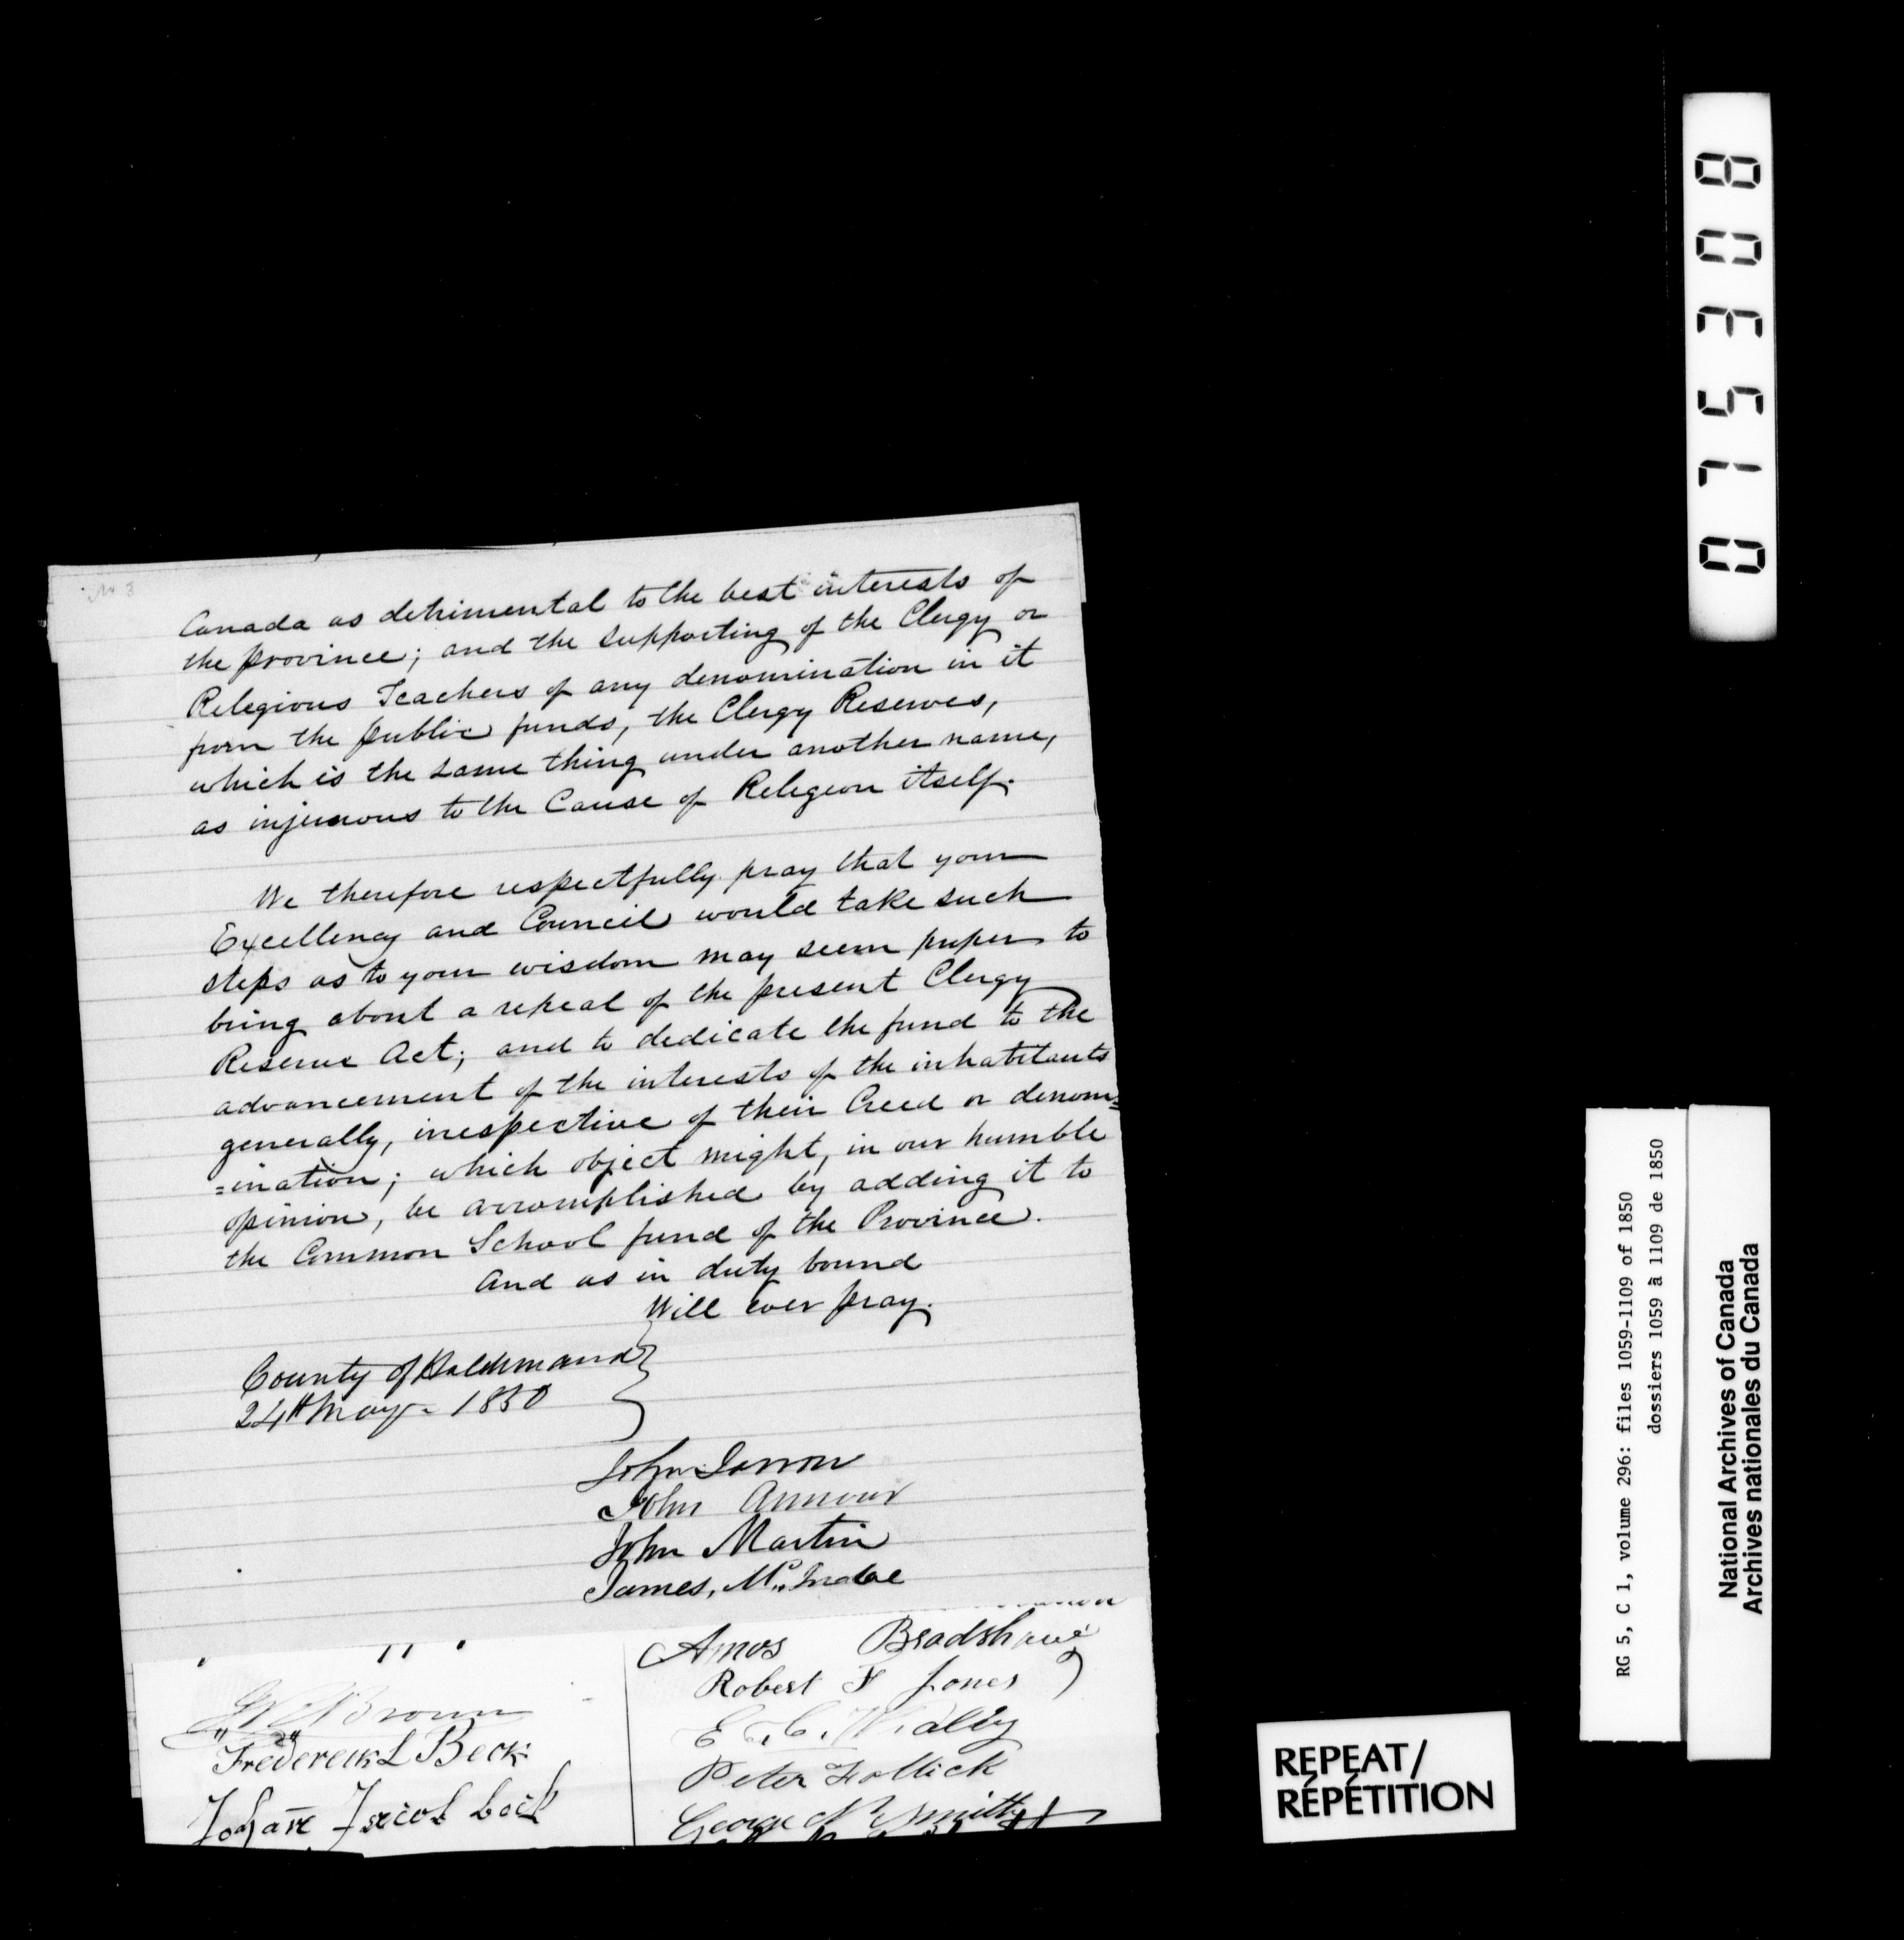 No 3
Canada as detrimental to the best interests of
the province; and the supporting of the Clergy or
Religious Teachers of any denomination in it
from the public funds, the Clergy Reserves,
which is the same thing under another name,
as injurious to the Cause of Religion itself.
We therefore respectfully pray that your
Excellency and Council would take such
steps as to your wisdom may seem proper to
bring about a repeal of the present Clergy
Reserve Act; and to dedicate the fund to the
advancement of the interests of the inhabitants
generally, irrespective of their Creed or denom=
=ination; which object might, in our humble
opinion, be accomplished by adding it to
the Common School fund of the Province.
And as in duty bound
Will ever pray.
County of Haldimand
24th May - 1850
John
John Armour
John Martin
James, Mc Indoe
Amos Bradshaw
Robert F Jones
E. C.
Peter Follick
George N Smith
Brown
Frederick L Beck
Johann Jacob Beck
REPEAT/
RÉPÉTITION
RG 5, C 1, volume 296: files 1059-1109 of 1850
dossiers 1059 à 1109 de 1850
National Archives of Canada
Archives nationales du Canada
017530 8